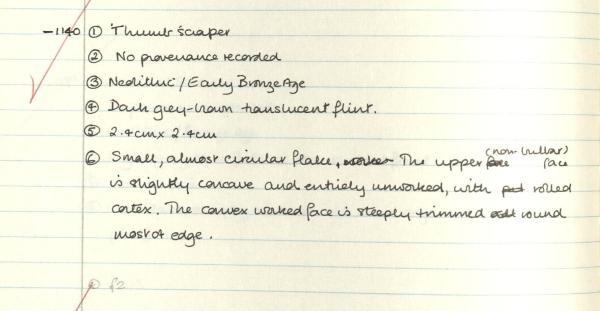 -1140 ① Thumb scraper
② No provenance recorded
③ Neolithic / Early Bronze Age
④ Dark grey-brown translucent flint.
⑤ 2.4cm x 2.4cm
⑥ Small, almost circular flake, The upper (non-bulbar) face
is slightly concave and entirely unworked, with rolled
cortex. The convex worked face is steeply trimmed round
most of edge.
① f2